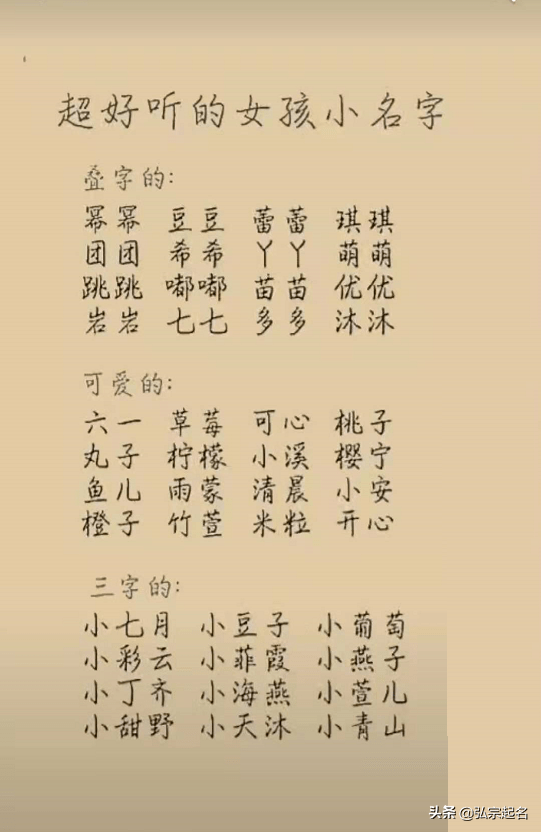 超好听的女孩小名字
叠字的:
幂幂 豆豆 蕾蕾 琪琪
团团 希希 丫丫 萌萌
跳跳 嘟嘟 苗苗 优优
岩岩 七七 多多 沐沐
可爱的:
六一 草莓 可心 桃子
丸子 柠檬 小溪 樱宁
鱼儿 雨蒙 清晨 小安
橙子 竹萱 米粒 开心
三字的:
小七月 小豆子 小葡萄
小彩云 小菲霞 小燕子
小丁齐 小海燕 小萱儿
小甜野 小天沐 小青山
头条 @弘宗起名